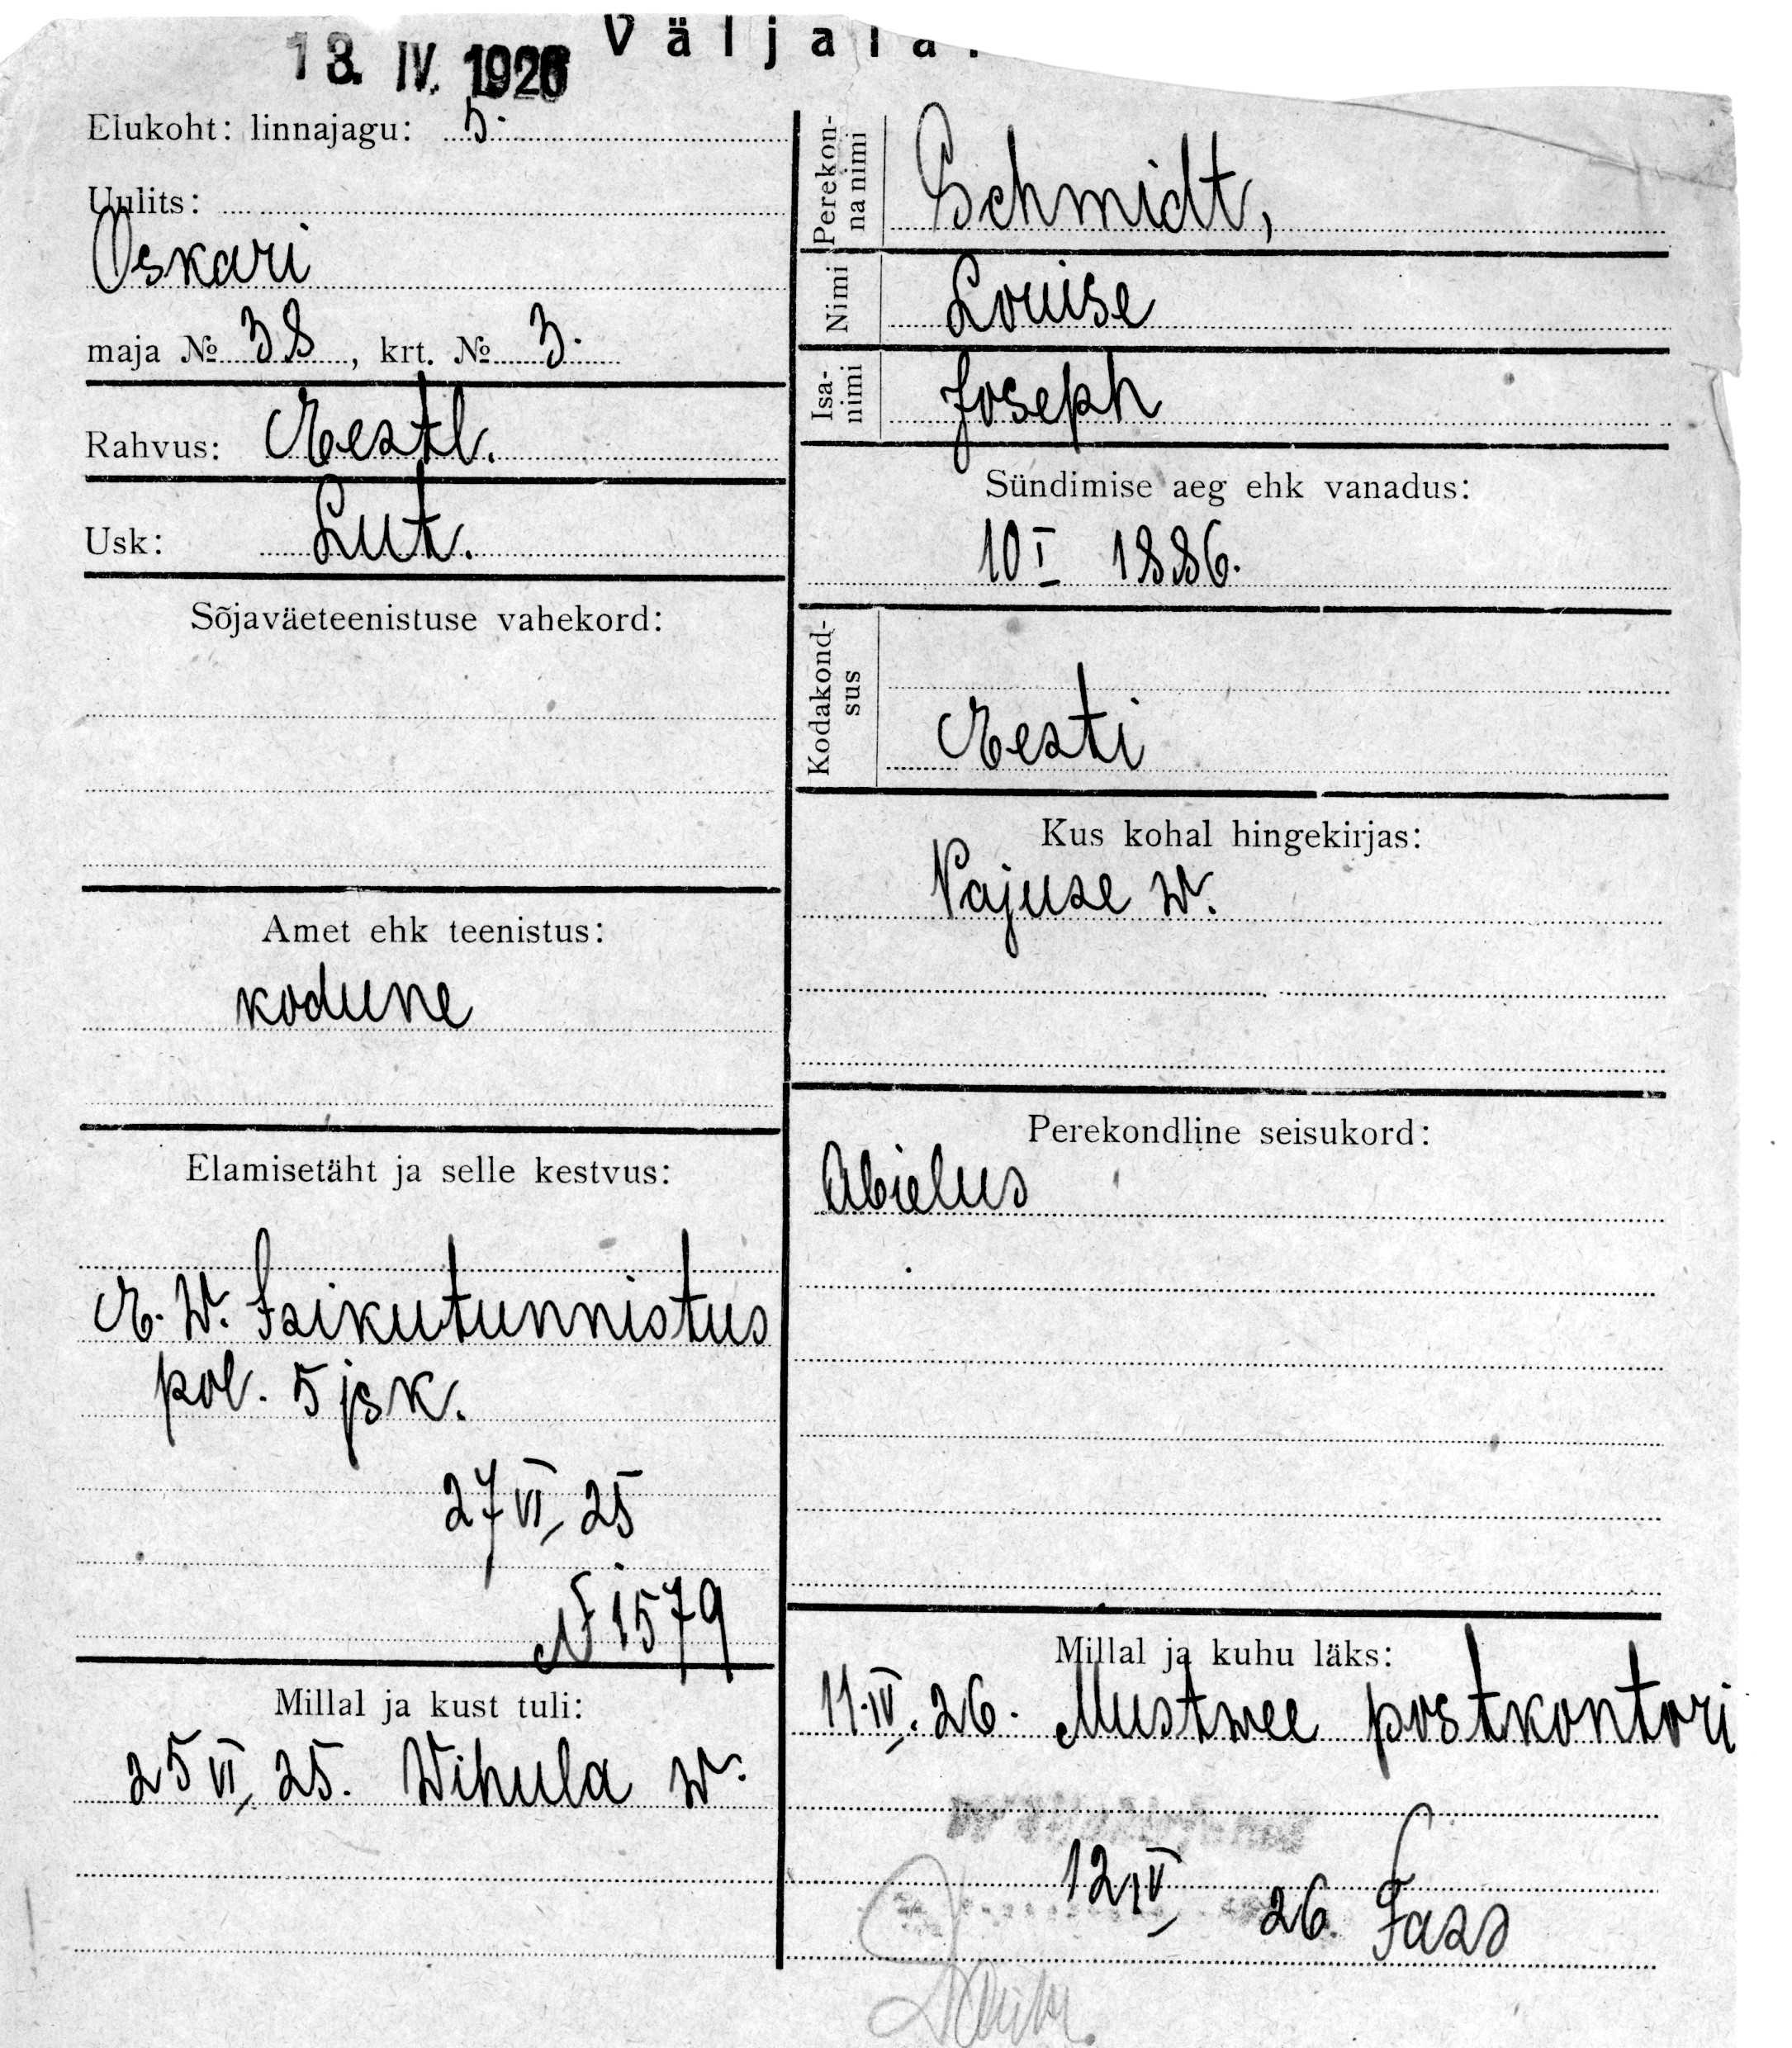 13. IV. 1926
Elukoht: linnajagu: 5.
Uulits:
Oskari
maja № 38, krt. № 3.
Rahvus: Eestl.
Usk: Lut.
Sõjaväeteenistuse vahekord:
Amet ehk teenistus:
kodune
Elamisetäht ja selle kestvus:
E. W. Isikutunnistus
pol. 5 jsk.
27 VI 25
№ 1579
Millal ja kust tuli:
25 VI 25. Wihula w.
Perekon-
na nimi
Schmidt,
Nimi
Louise
Isa-
nimi
Joseph
Sündimise aeg ehk vanadus:
10 I 1886.
Kodakond-
sus
Eesti
Kus kohal hingekirjas:
Pajuse w.
Perekondline seisukord:
Abielus
Millal ja kuhu läks:
11. IV. 26. Mustwee postkontori
12 IV 26.